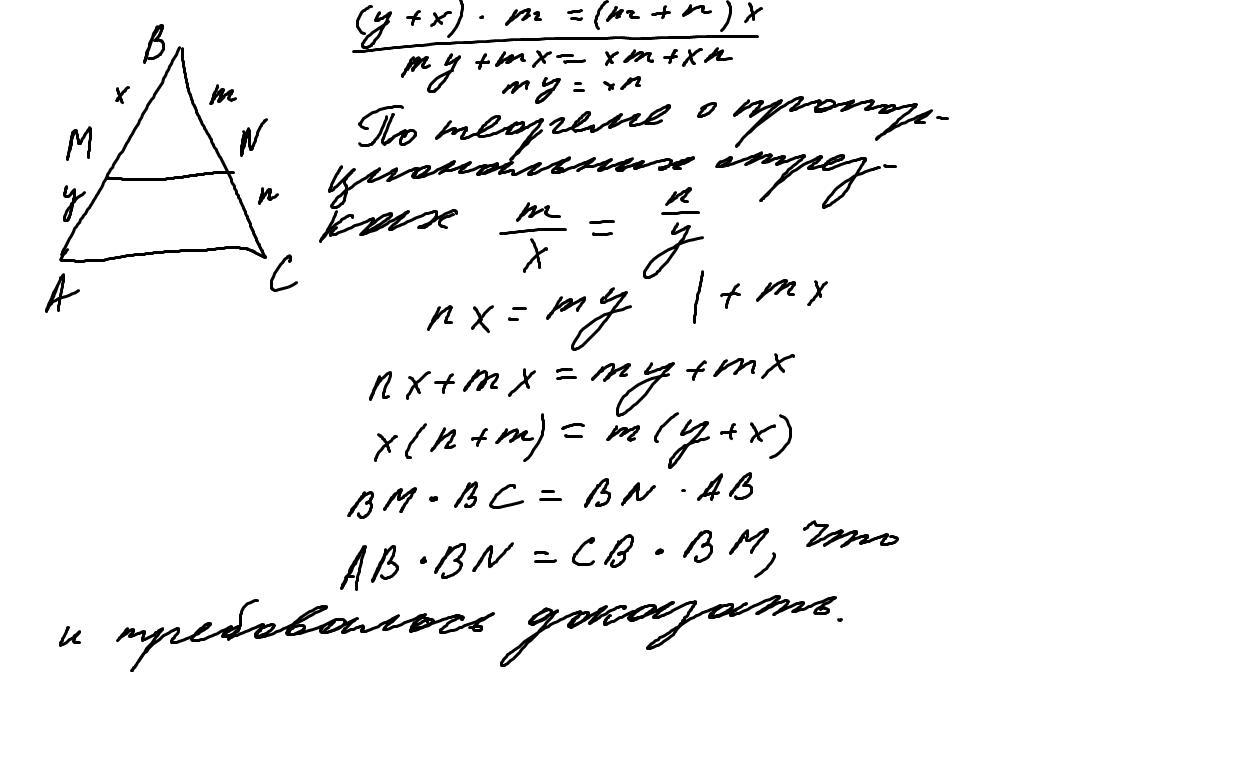 (y+x)·m=(m+n)x
my+mx=xm+xn
my=xn
B
x
m
M
N
y
n
A
C
По теореме о пропор-
циональних отрез-
ках m/x = n/y
nx=my |+mx
nx+mx=my+mx
x(n+m)=m(y+x)
BM·BC=BN·AB
AB·BN=CB·BM, что
и требовалось доказать.